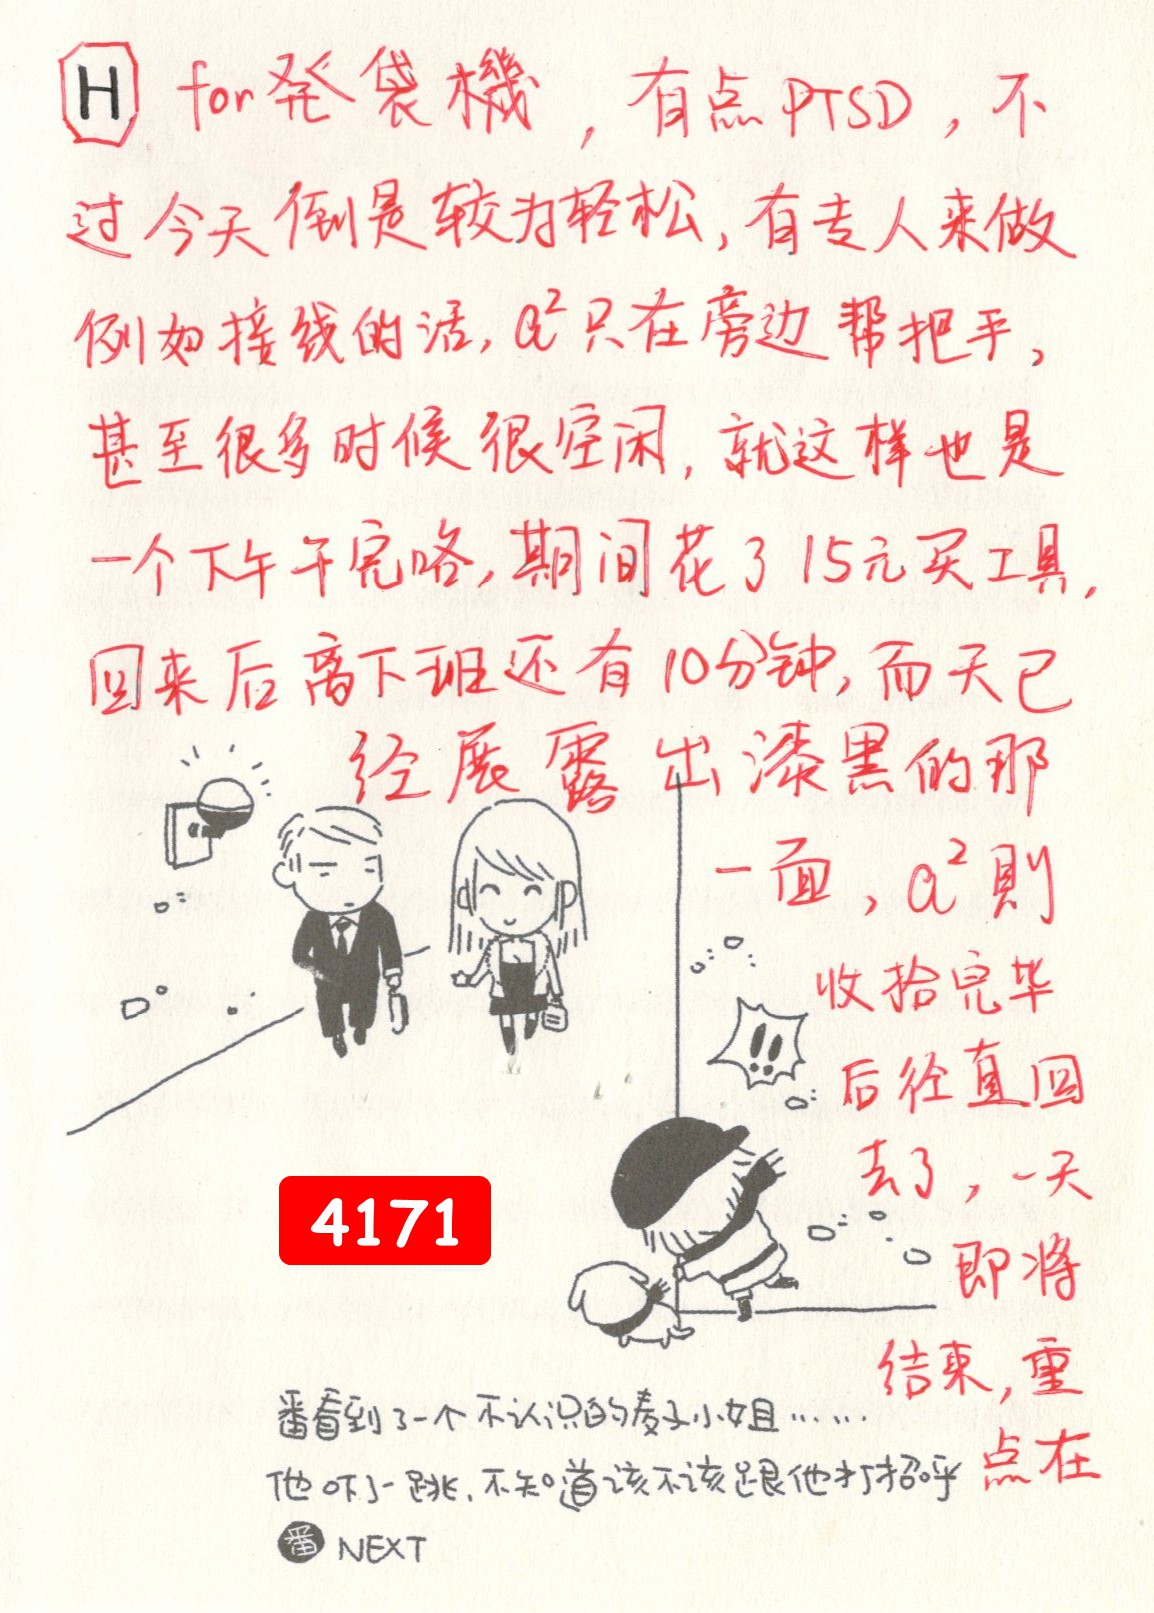 H for発袋機，有点PTSD，不
过今天倒是较为轻松，有专人来做
例如接线的活，a²只在旁边帮把手，
甚至很多时候很空闲，就这样也是
一个下午干完咯，期间花了15元买工具，
回来后离下班还有10分钟，而天已
经展露出漆黑的那
一面，a²則
收拾完毕
后径直回
去了，一天
即将
结束，重
点在
!!
4171
番看到了一个不认识的麦子小姐……
他吓了一跳，不知道该不该跟他打招呼
番 NEXT